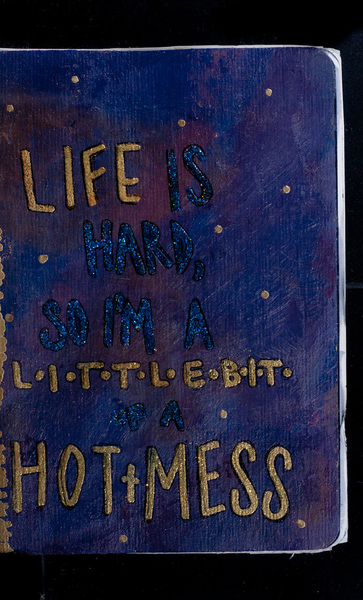 LIFE IS
HARD,
SO I'M A
L·I·T·T·L·E·B·I·T·
OF A
HOT+MESS